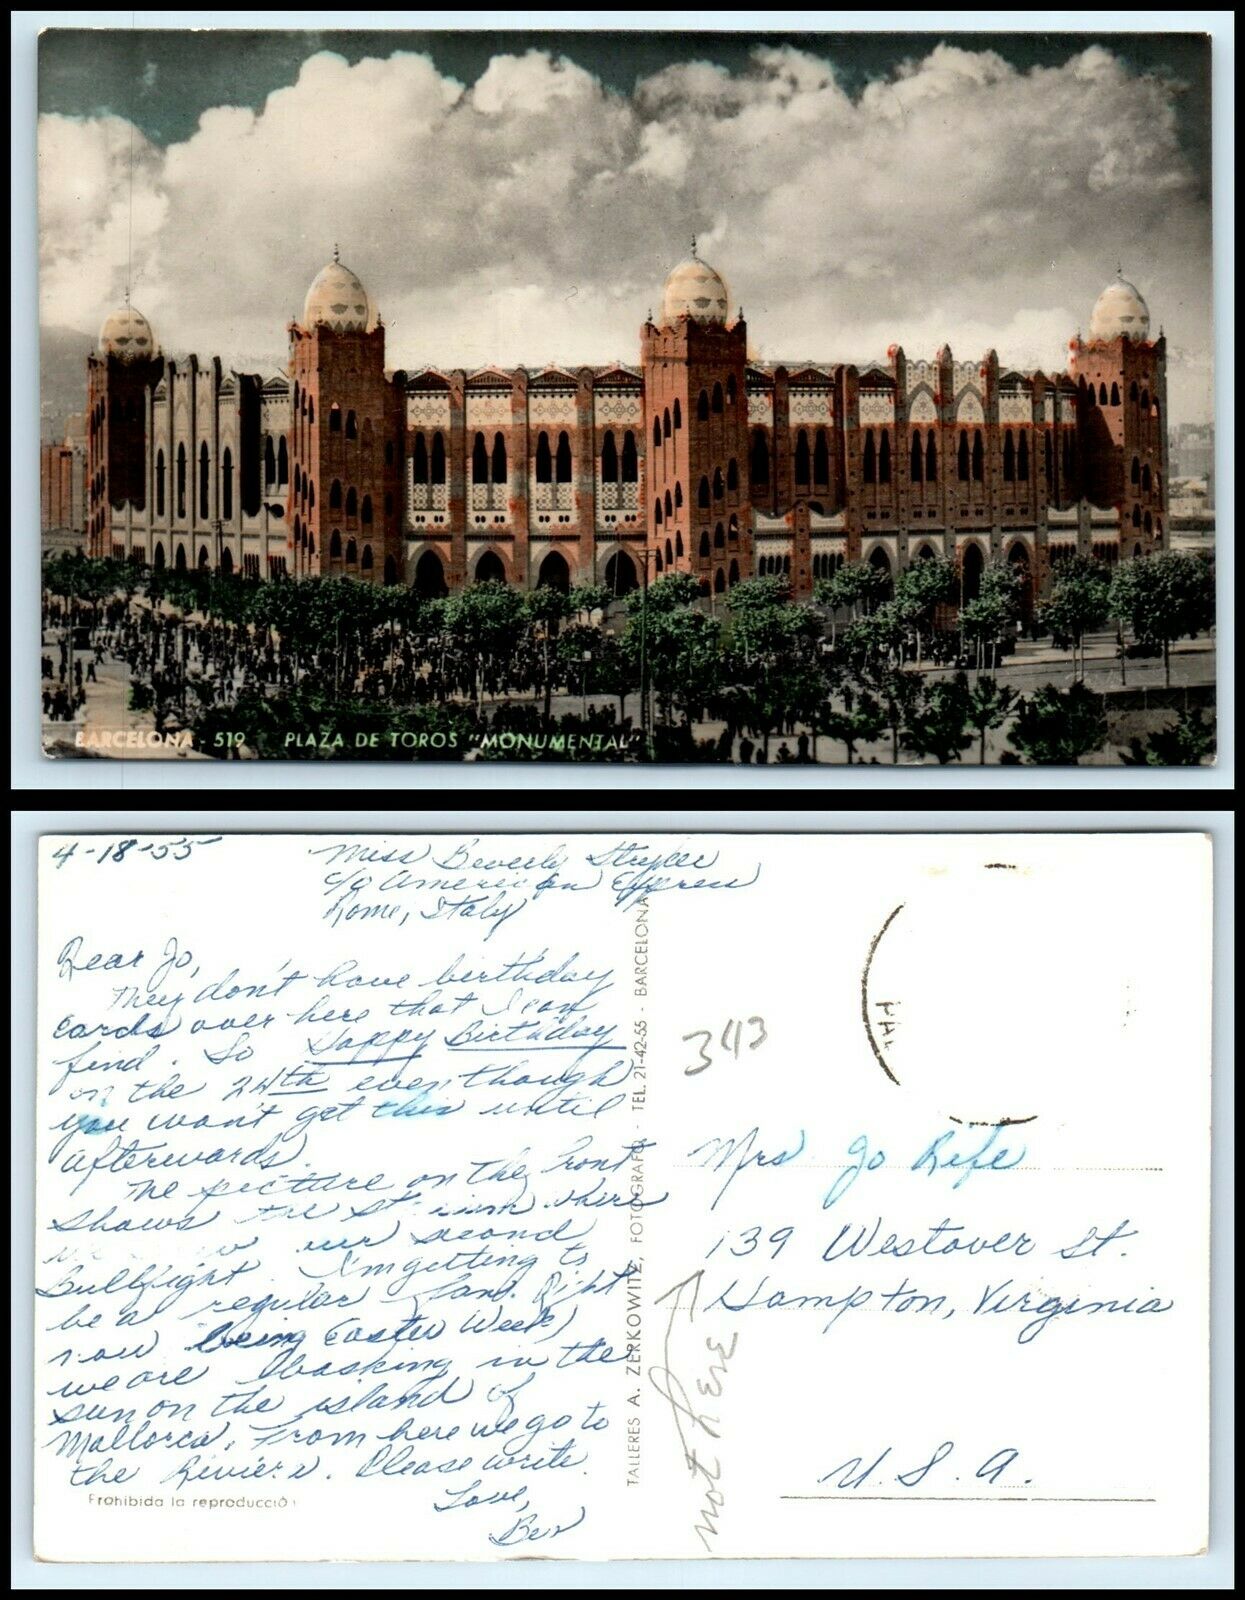 BARCELONA - 519 PLAZA DE TOROS "MONUMENTAL"
4-18-55
Miss Beverly Stryker
c/o American Express
Rome, Italy
Dear Jo,
They don't have birthday
cards over here that I can
find. So Happy Birthday
on the 24th even though
you won't get this until
afterwards.
The picture on the front
shows the where
our second
Bullfight. I'm getting to
be a regular fan. Right
now (being Easter Week)
we are basking in the
sun on the island of
Mallorca. From here we go to
the Riviera. Please write.
Love,
Bev
Prohibida la reproducció
TALLERES A. ZERKOWITZ, FOTOGRAFO - TEL. 21-42-55 - BARCELONA
343
Mrs Jo Rife
139 Westover St.
Hampton, Virginia
U.S.A.
not here